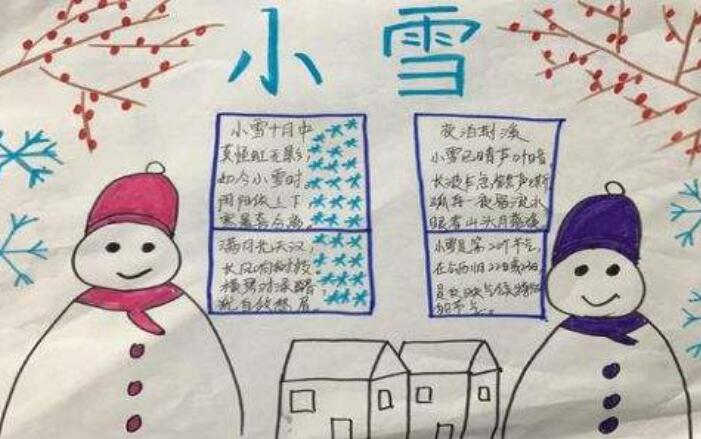 小雪
小雪十月中
莫怪虹无影
如今小雪时
阴阳依上下
寒暑喜分离。
满月光天汉，
长风响树枝。
横琴对渌醑
犹自敛愁眉。
夜泊荆溪
小雪已晴芦叶暗
长波乍急鹤声嘶
孤舟一夜宿流水
眼看山头月落溪
小雪是第20个节气，
在
日
节气。